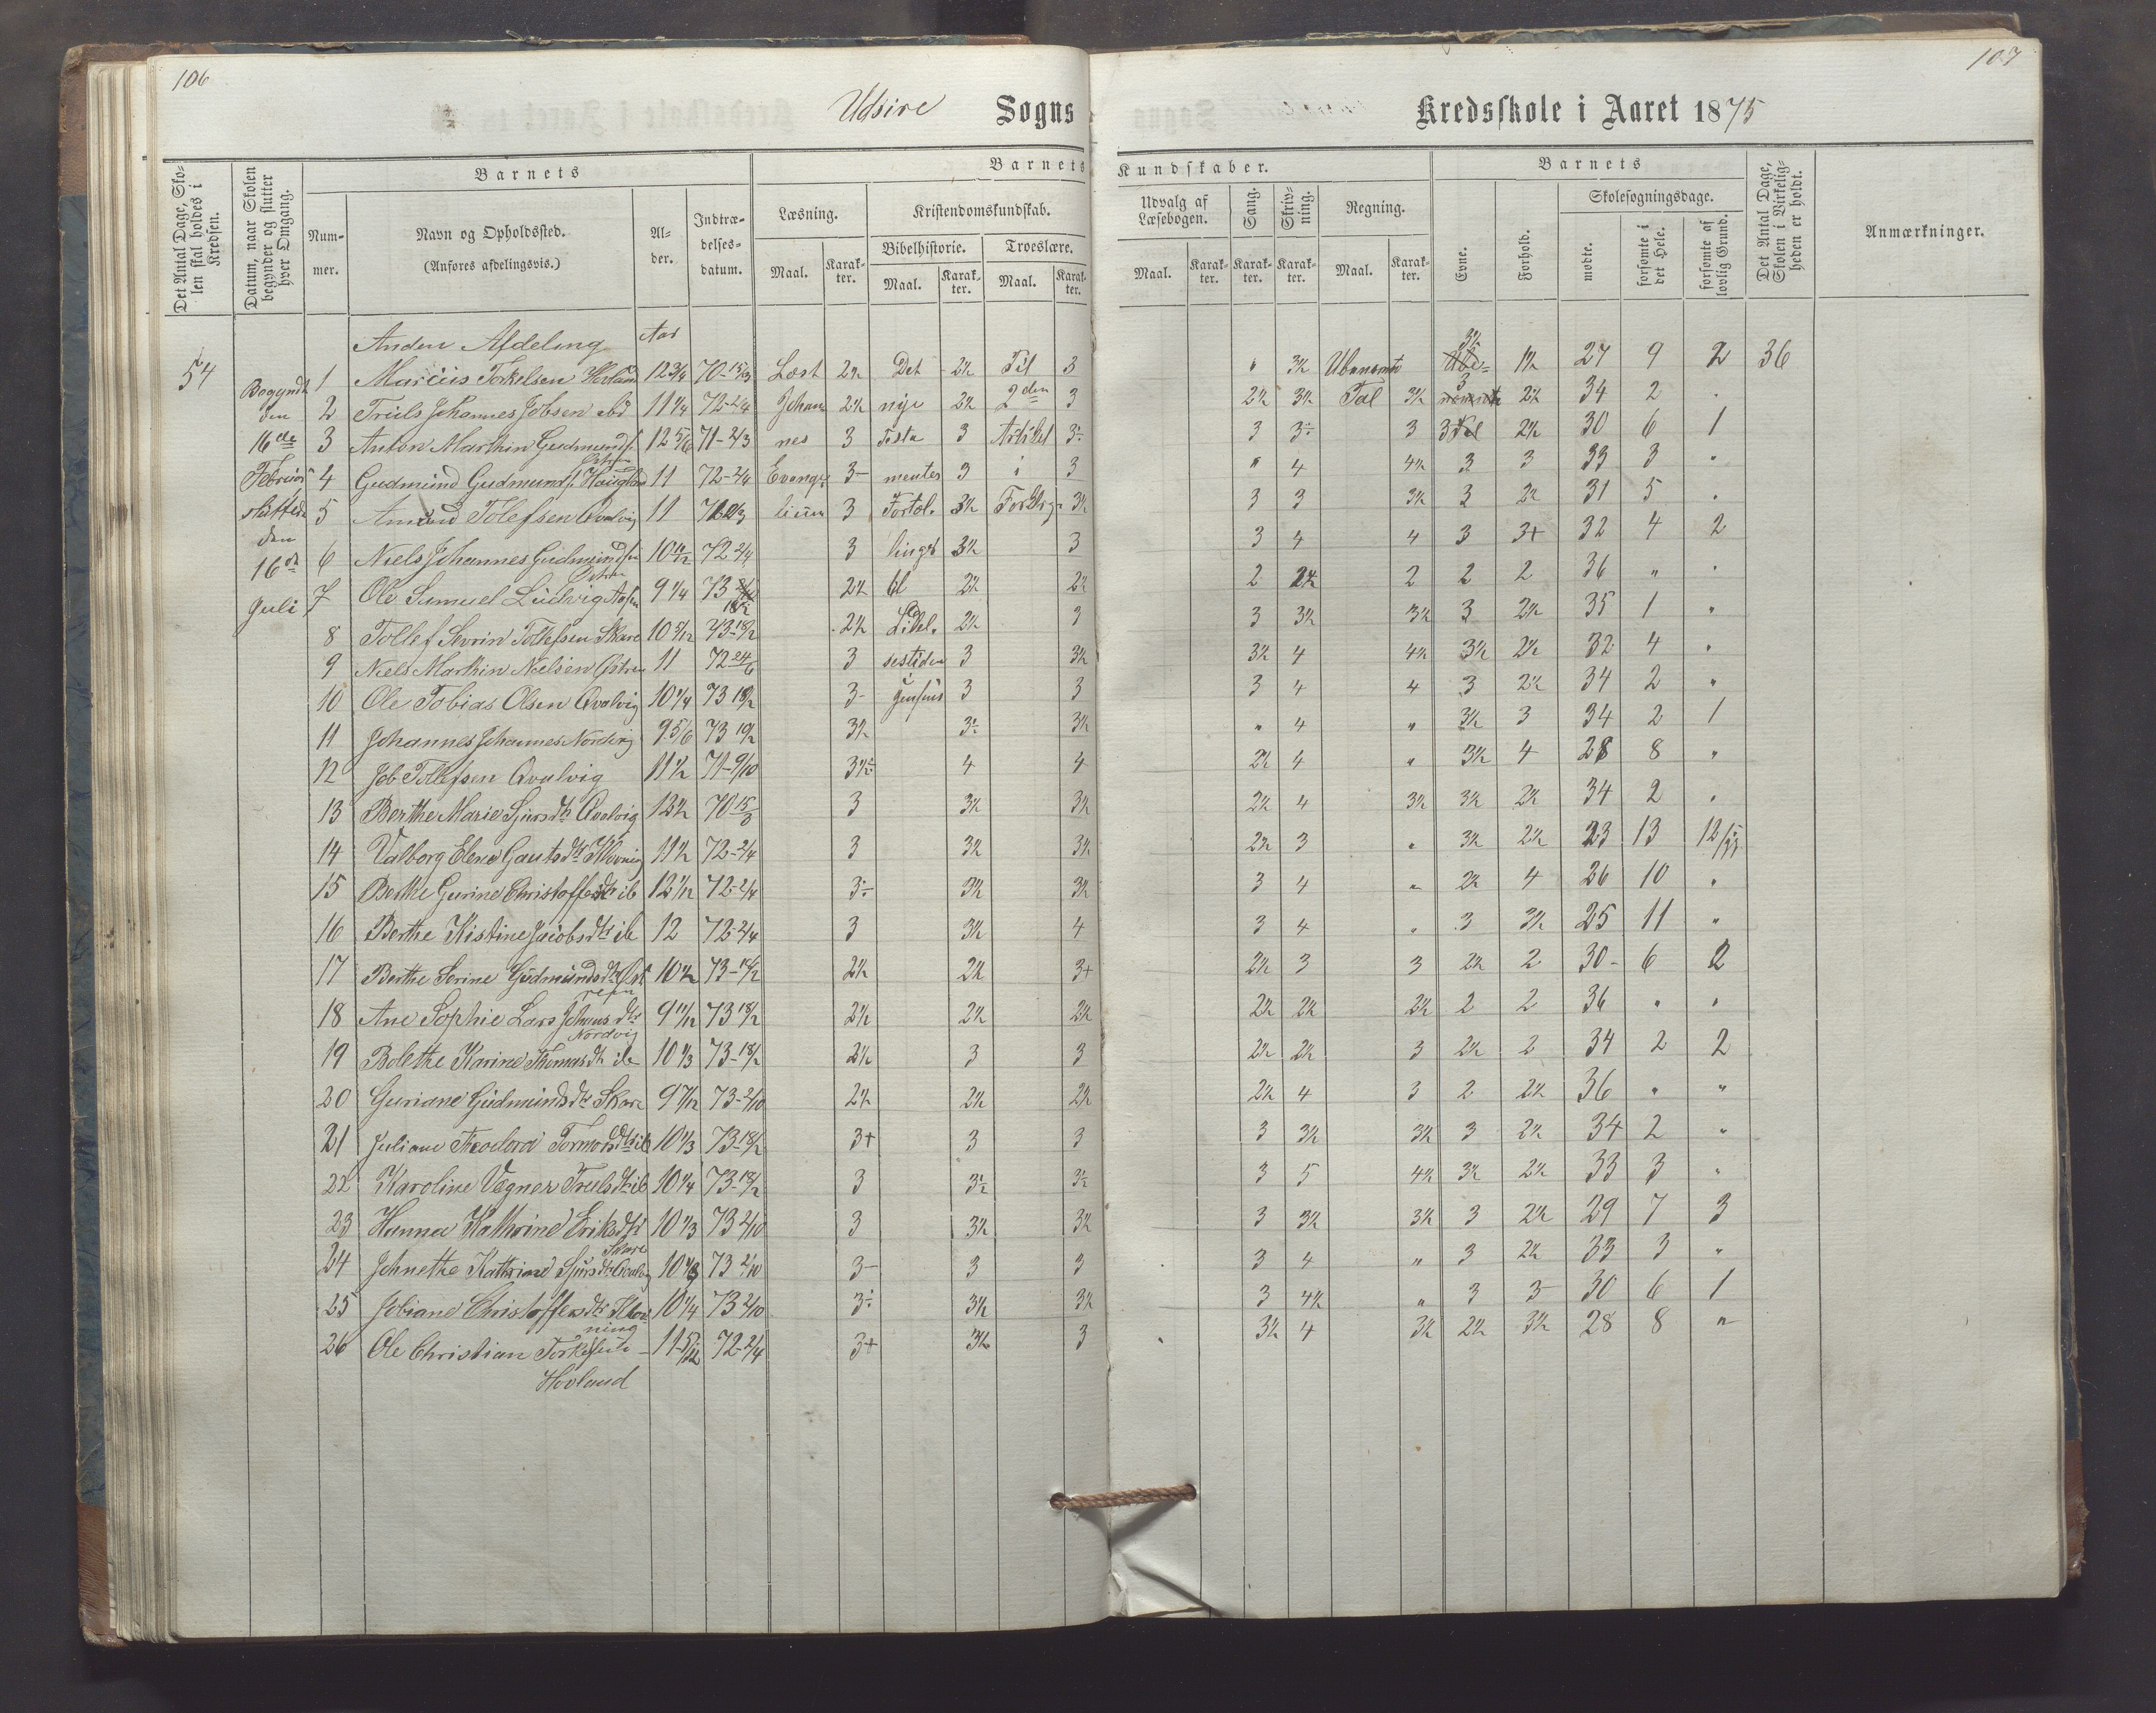 106
107
Udsire Sogns Kredsskole i Aaret 1875
Det Antal Dage, Skolen skal holdes i Kredsen.
Datum, naar Skolen begynder og slutter hver Omgang.
Barnets
Nummer.
Navn og Opholdssted.
(Anføres afdelingsvis.)
Alder.
Indtrædelsesdatum.
Barnets Kundskaber.
Læsning.
Maal.
Karakter.
Kristendomskundskab.
Bibelhistorie.
Maal.
Karakter.
Troeslære.
Maal.
Karakter.
Udvalg af Læsebogen.
Maal.
Karakter.
Sang.
Karakter.
Skrivning.
Karakter.
Regning.
Maal.
Karakter.
Barnets
Evne.
Forhold.
Skolesøgningsdage.
mødte.
forsømte i det Hele.
forsømte af lovlig Grund.
Det Antal Dage, Skolen i Virkeligheden er holdt.
Anmærkninger.
Anden Afdeling Aar
54
Begyndt den 16de Februar sluttede den 16de Juli
1 Marcius Torkelsen Hovland 12 3/4 70-15/3 Læst 2½ Det 2½ Til 3 " 3½ Ubenævnte 3½ 1½ 27 9 2 36
2 Truls Johannes Jobsen ibd 11 1/4 72-2/4 Johan 2½ nye 2½ 2den 3 2½ 3½ Tal 3½ 3 2½ 34 2 "
3 Anton Marthin Gudmunds. Østrem 12 5/6 71-2/3 nes 3 Testa 3 Artikel 3÷ 3 3÷ 3 3 2½ 30 6 1
4 Gudmund Gudmunds. Haugland 11 72-2/4 Evange 3- mentes 3 i 3 " 4 4½ 3 3 33 3 "
5 Amund Tolefsen Qvalvig 11 71 2/3 lium 3 Fortæl. 3½ Forklrg. 3½ 3 3 3½ 3 2½ 31 5 "
6 Niels Johannes Gudmundsen Østrem 10 11/12 72 2/4 3 linger 3½ 3 3 4 4 3 3+ 32 4 2
7 Ole Samuel Ludvig Aasen 9 1/4 73 18/2 2½ til 2½ 2½ 2 2½ 2 2 2 36 " "
8 Tollef Sevrin Tollefsen Skare 10 5/12 73-18/2 2½ Lidel. 2½ 3 3 3½ 3½ 3 2½ 35 1 "
9 Niels Marthin Nielsen Østrem 11 72 24/6 3 sestiden 3 3½ 3½ 4 4½ 3½ 2½ 32 4 "
10 Ole Tobias Olsen Qvalvig 10 1/4 73 18/2 3- 3 3 3 4 4 3 2½ 34 2 "
11 Johannes Johannes. Nordvig 9 5/6 73 19/2 3½ 3÷ 3½ " 4 " 3½ 3 34 2 1
12 Job Tollefsen Qvalvig 11½ 71-9/10 3½÷ 4 4 2½ 4 " 3½ 4 28 8 "
13 Berthe Marie Sjursdtr Qvalvig 12½ 70 15/3 3 3½ 3½ 2½ 4 3½ 3½ 2½ 34 2 "
14 Valborg Elene Gautsdtr Klovning 11½ 72-2/4 3 3½ 3½ 2½ 3 " 3½ 2½ 23 13 12
15 Berthe Gurine Christoffersdtr ib 12 1/12 72-2/4 3÷ 3½ 3½ 3 4 " 2½ 4 26 10 "
16 Berthe Kistine Jacobsdtr ib 12 72-2/4 3 3½ 4 3 4 " 3 3½ 25 11 "
17 Berthe Serine Gudmundsdtr Østrem 10½ 73-18/2 2½ 2½ 3+ 2½ 3 3 2½ 2 30- 6 2
18 Ane Sophie Lars Johansdtr Nordvig 9 11/12 73 18/2 2½ 2½ 2½ 2½ 2½ 2½ 2 2 36 " "
19 Bolethe Karine Thomasdtr ib 10 1/3 73-18/2 2½ 3 3 2½ 2½ 3 2½ 2 34 2 2
20 Guriane Gudmundsdtr Skare 9 7/12 73-2/10 2½ 2½ 2½ 2½ 4 3 2 2½ 36 " "
21 Juliane Theodora Tormodsdtr ib 10 1/3 73-18/2 3+ 3 3 3 3½ 3½ 3 2½ 34 2 "
22 Karoline Vegner Trulsdtr ib 10 1/4 73-18/2 3 3½ 3½ 3 5 4½ 3½ 2½ 33 3 "
23 Hanna Kathrine Eriksdtr Skare 10 1/3 73 2/10 3 3½ 3½ 3 3½ 3½ 3 2½ 29 7 3
24 Johnethe Kathrine Sjursdtr Qvalvig 10 1/3 73 2/10 3- 3 3 3 4 " 3 2½ 33 3 "
25 Jobiane Christoffersdtr Klovning 10 1/4 73 2/10 3÷ 3½ 3½ 3 4½ " 3 3- 30 6 1
26 Ole Christian Torkelsen Hovland 11 5/12 72-2/4 3+ 3½ 3 3½ 4 3½ 2½ 3½ 28 8 "